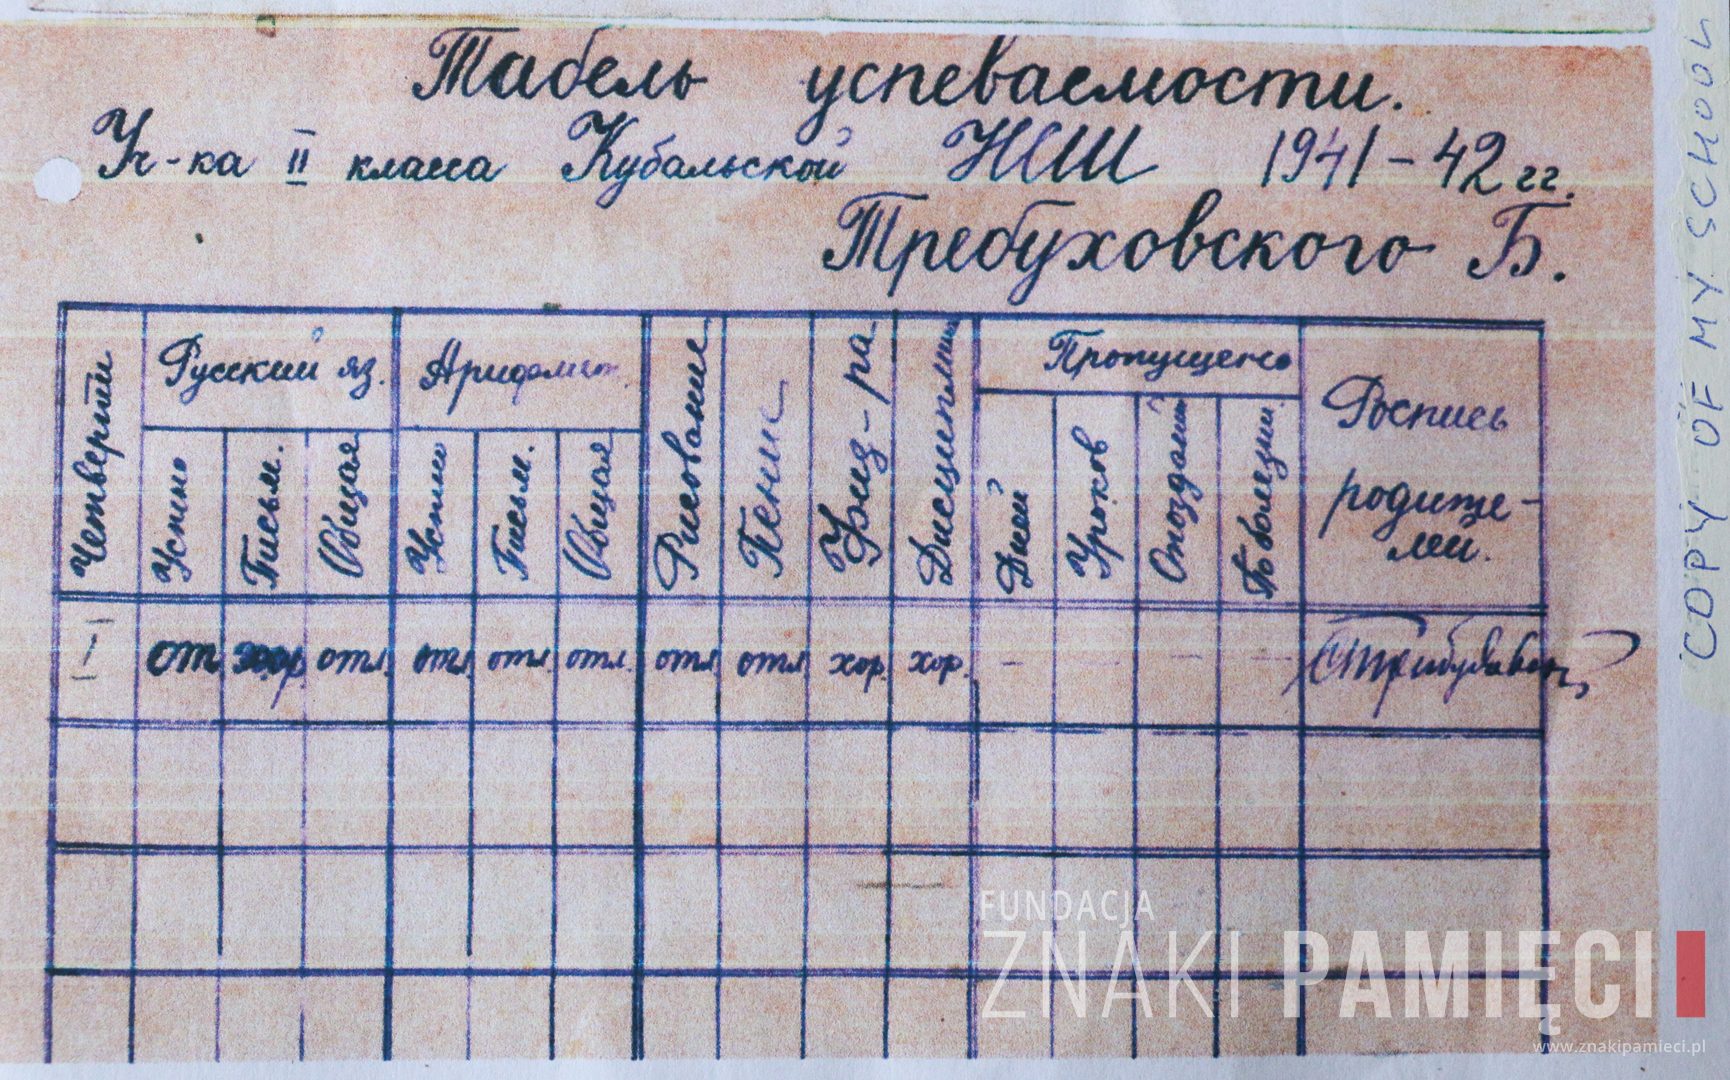 Табель успеваемости.
Уч-ка II класса Кубальской НСШ 1941-42 гг.
Требуховского Б.
Четверти
Русский яз.
Арифмет.
Рисование
Пение
Физ-ра
Дисциплин
Пропущено
Роспись
родите-
лей.
Устно
Письм.
Общая
Устно
Письм.
Общая
Дней
Уроков
Опозданий
По болезни
I отл. хор. отл. отл. отл. отл. отл отл хор. хор. - - - -
COPY OF MY SCHOOL
FUNDACJA
ZNAKI PAMIĘCI
www.znakipamieci.pl